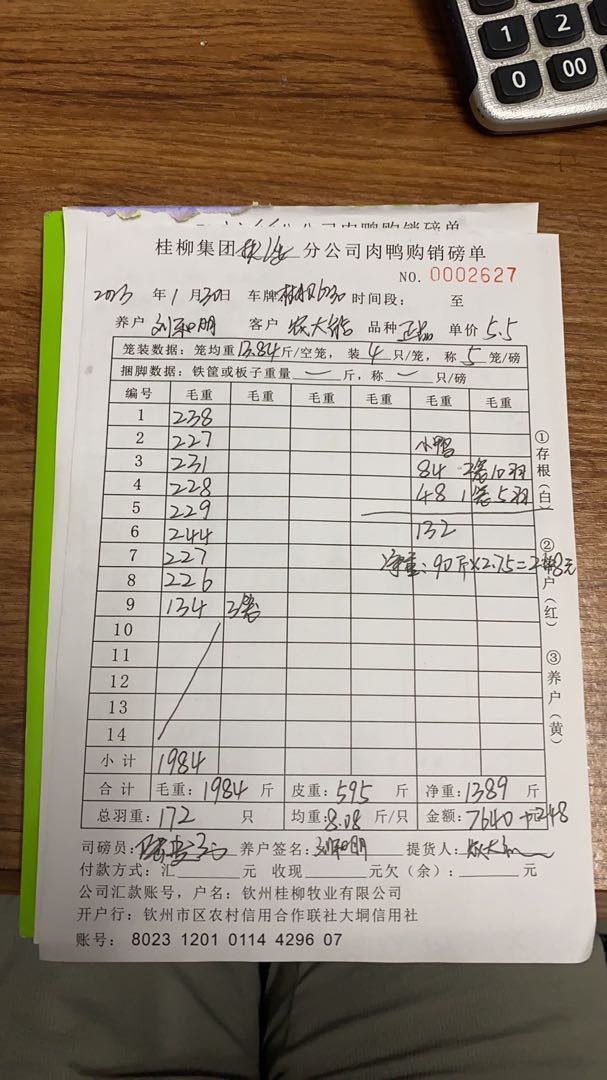 1 2
0 00
公司肉鸭购销磅单
桂柳集团 分公司肉鸭购销磅单
NO. 0002627
2023 年 1 月 30 日 车牌 时间段： 至
养户 刘和明 客户 品种 正品 单价 5.5
笼装数据：笼均重 13.84 斤/空笼，装 4 只/笼，称 5 笼/磅
捆脚数据：铁筐或板子重量 — 斤，称 — 只/磅
编号 毛重 毛重 毛重 毛重 毛重 毛重
1 238
2 227 小鸭
3 231 84 2笼10羽
4 228 48 1笼5羽
5 229
6 244 132
7 227 净重：90斤×2.75=248元
8 226
9 134 3笼
10
11
12
13
14
小计 1984
合计 毛重：1984 斤 皮重：595 斤 净重：1389 斤
总羽重：172 只 均重：8.08 斤/只 金额：7640+248
司磅员： 养户签名：刘和明 提货人：
付款方式：汇 元 收现 元欠（余）： 元
公司汇款账号，户名：钦州桂柳牧业有限公司
开户行：钦州市区农村信用合作联社大垌信用社
账号：8023 1201 0114 4296 07
①存根（白）
②户（红）
③养户（黄）